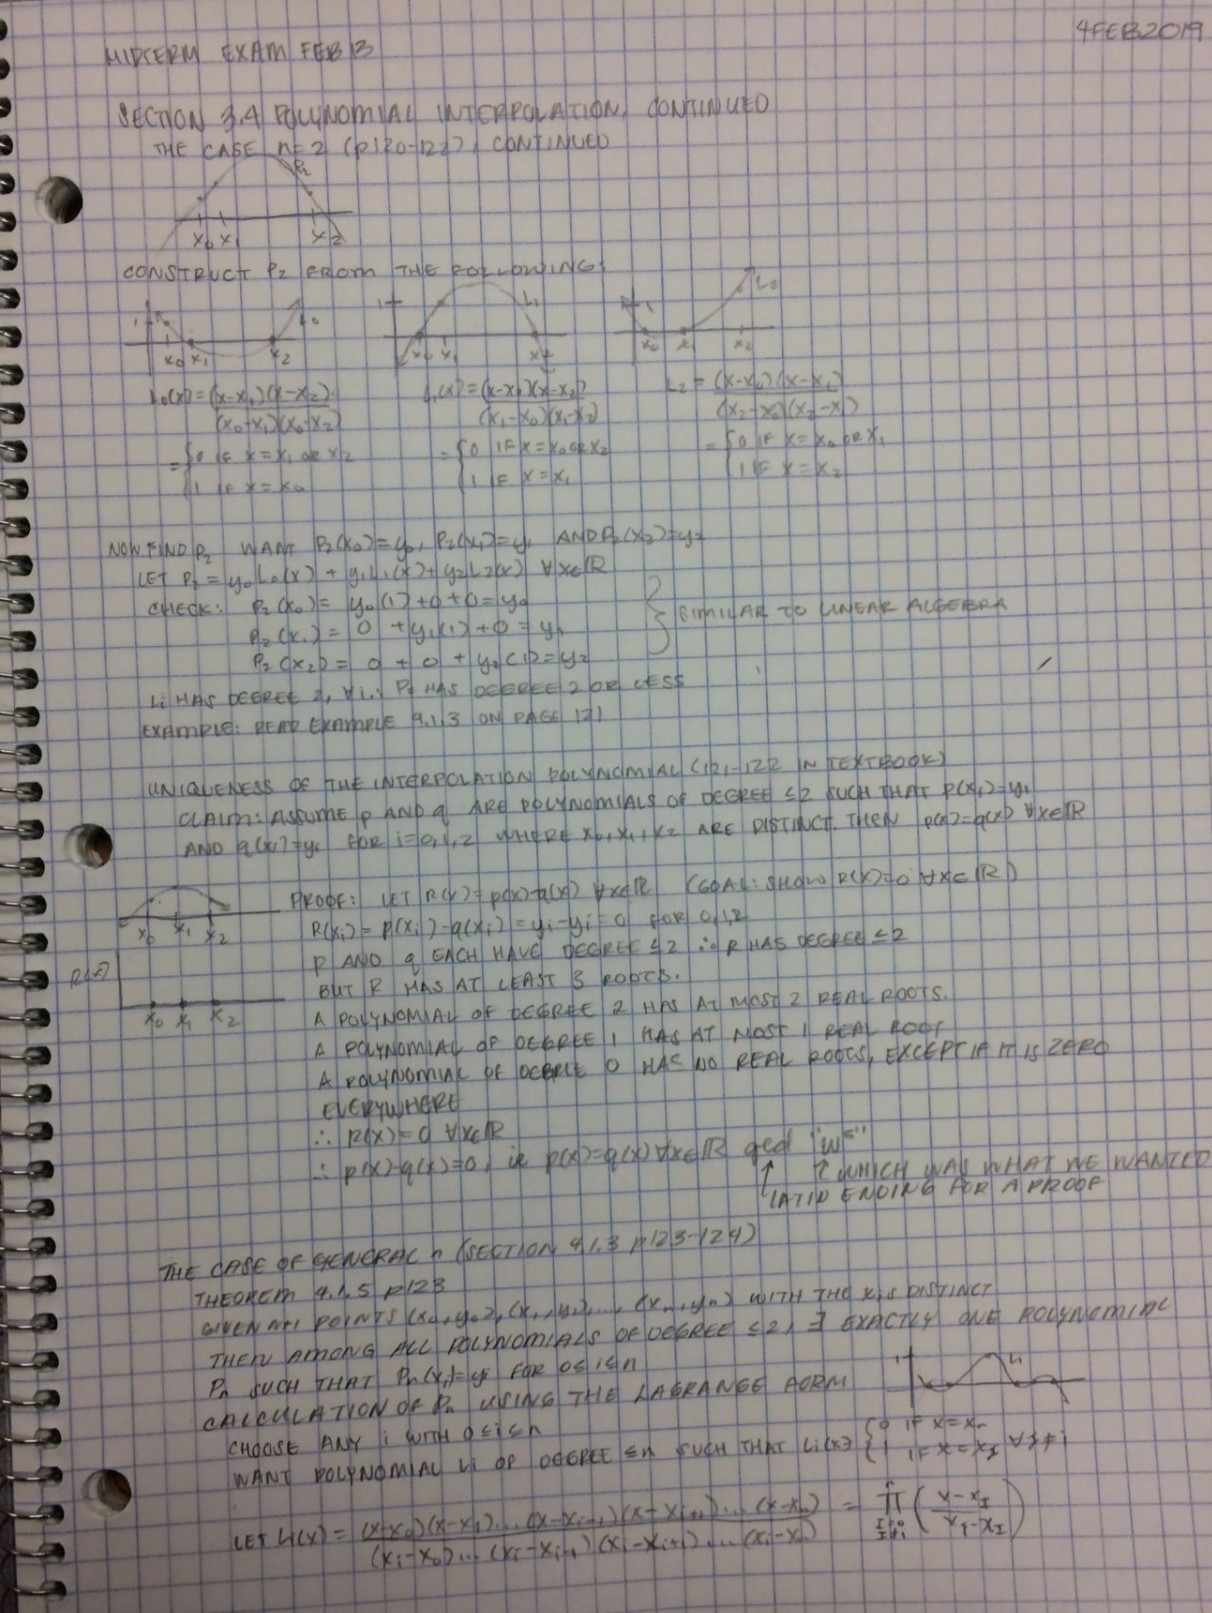 4FEB2019
MIDTERM EXAM FEB 13
SECTION 3.4 POLYNOMIAL INTERPOLATION, CONTINUED
THE CASE n=2 (p120-122), CONTINUED
P₂
x₀ x₁ x₂
CONSTRUCT P₂ FROM THE FOLLOWING:
1 L₀ 1 L₁ 1 L₂
x₀ x₁ x₂ x₀ x₁ x₂ x₀ x₁ x₂
L₀(x)=(x-x₁)(x-x₂) L₁(x)=(x-x₀)(x-x₂) L₂=(x-x₀)(x-x₁)
(x₀-x₁)(x₀-x₂) (x₁-x₀)(x₁-x₂) (x₂-x₀)(x₂-x₁)
={0 IF x=x₁ OR x₂ ={0 IF x=x₀ OR x₂ ={0 IF x=x₀ OR x₁
1 IF x=x₀ 1 IF x=x₁ 1 IF x=x₂
NOW FIND P₂ WANT P₂(x₀)=y₀, P₂(x₁)=y₁ AND P₂(x₂)=y₂
LET P₂=y₀L₀(x)+y₁L₁(x)+y₂L₂(x) ∀x∈ℝ
CHECK: P₂(x₀)= y₀(1)+0+0=y₀
P₂(x₁)= 0 +y₁(1)+0=y₁ } SIMILAR TO LINEAR ALGEBRA
P₂(x₂)= 0 + 0 + y₂(1)=y₂
Li HAS DEGREE 2, ∀i ∴ P₂ HAS DEGREE 2 OR LESS
EXAMPLE: READ EXAMPLE 4.1.3 ON PAGE 121
UNIQUENESS OF THE INTERPOLATION POLYNOMIAL (121-122 IN TEXTBOOK)
CLAIM: ASSUME p AND q ARE POLYNOMIALS OF DEGREE ≤2 SUCH THAT p(xᵢ)=yᵢ
AND q(xᵢ)=yᵢ FOR i=0,1,2 WHERE x₀,x₁,x₂ ARE DISTINCT. THEN p(x)=q(x) ∀x∈ℝ
PROOF: LET R(x)=p(x)-q(x) ∀x∈ℝ (GOAL: SHOW R(x)=0 ∀x∈ℝ)
x₀ x₁ x₂
R(xᵢ)=p(xᵢ)-q(xᵢ)=yᵢ-yᵢ=0 FOR 0,1,2
P AND q EACH HAVE DEGREE ≤2 ∴ R HAS DEGREE ≤2
R(x)
BUT R HAS AT LEAST 3 ROOTS.
x₀ x₁ x₂
A POLYNOMIAL OF DEGREE 2 HAS AT MOST 2 REAL ROOTS.
A POLYNOMIAL OF DEGREE 1 HAS AT MOST 1 REAL ROOT
A POLYNOMIAL OF DEGREE 0 HAS NO REAL ROOTS, EXCEPT IF IT IS ZERO
EVERYWHERE
∴ R(x)=0 ∀x∈ℝ
∴ p(x)-q(x)=0, ie p(x)=q(x) ∀x∈ℝ qed "w⁵"
WHICH WAS WHAT WE WANTED
LATIN ENDING FOR A PROOF
THE CASE OF GENERAL n (SECTION 4.1.3 p123-124)
THEOREM 4.1.5 p123
GIVEN n+1 POINTS (x₀,y₀),(x₁,y₁),...,(xₙ,yₙ) WITH THE xᵢs DISTINCT
THEN AMONG ALL POLYNOMIALS OF DEGREE ≤2, ∃ EXACTLY ONE POLYNOMIAL
Pₙ SUCH THAT Pₙ(xᵢ)=yᵢ FOR 0≤i≤n
1 Li
CALCULATION OF Pₙ USING THE LAGRANGE FORM
CHOOSE ANY i WITH 0≤i≤n
WANT POLYNOMIAL Li OF DEGREE ≤n SUCH THAT Li(x) {0 IF x=xₙ
1 IF x=x_I ∀I≠i
LET Li(x)=(x-x₀)(x-x₁)...(x-xᵢ₋₁)(x-xᵢ₊₁)...(x-xₙ) = ∏ⁿ_{I=0, I≠i} (x-x_I / xᵢ-x_I)
(xᵢ-x₀)...(xᵢ-xᵢ₋₁)(xᵢ-xᵢ₊₁)...(xᵢ-xₙ)